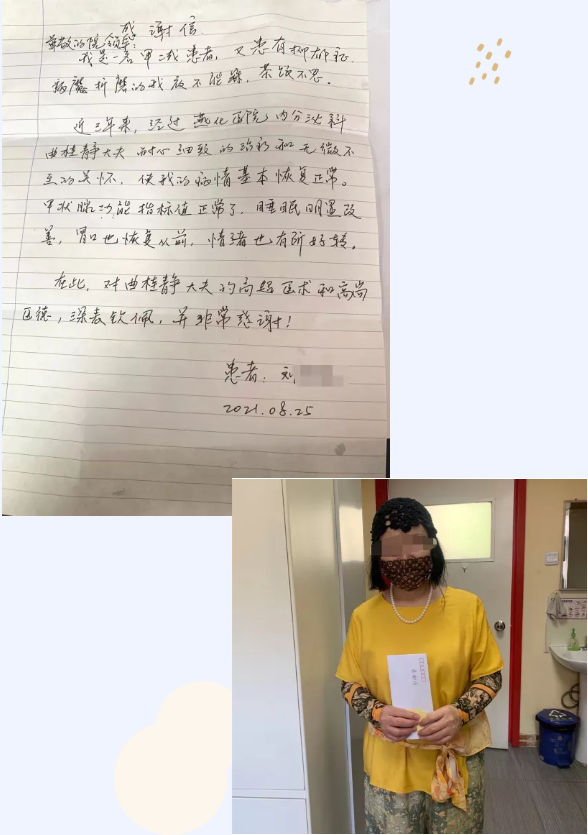 感谢信
尊敬的院领导:
我是一名甲亢患者,又患有抑郁症,
病魔折磨的我夜不能寐,茶饭不思。
近三年来,经过燕化医院内分泌科
曲桂静大夫耐心细致的治疗和无微不
至的关怀,使我的病情基本恢复正常。
甲状腺功能指标值正常了,睡眠明显改
善,胃口也恢复从前,情绪也有所好转。
在此,对曲桂静大夫的高超医术和高尚
医德,深表钦佩,并非常感谢!
患者:刘
2021.08.25
感谢信